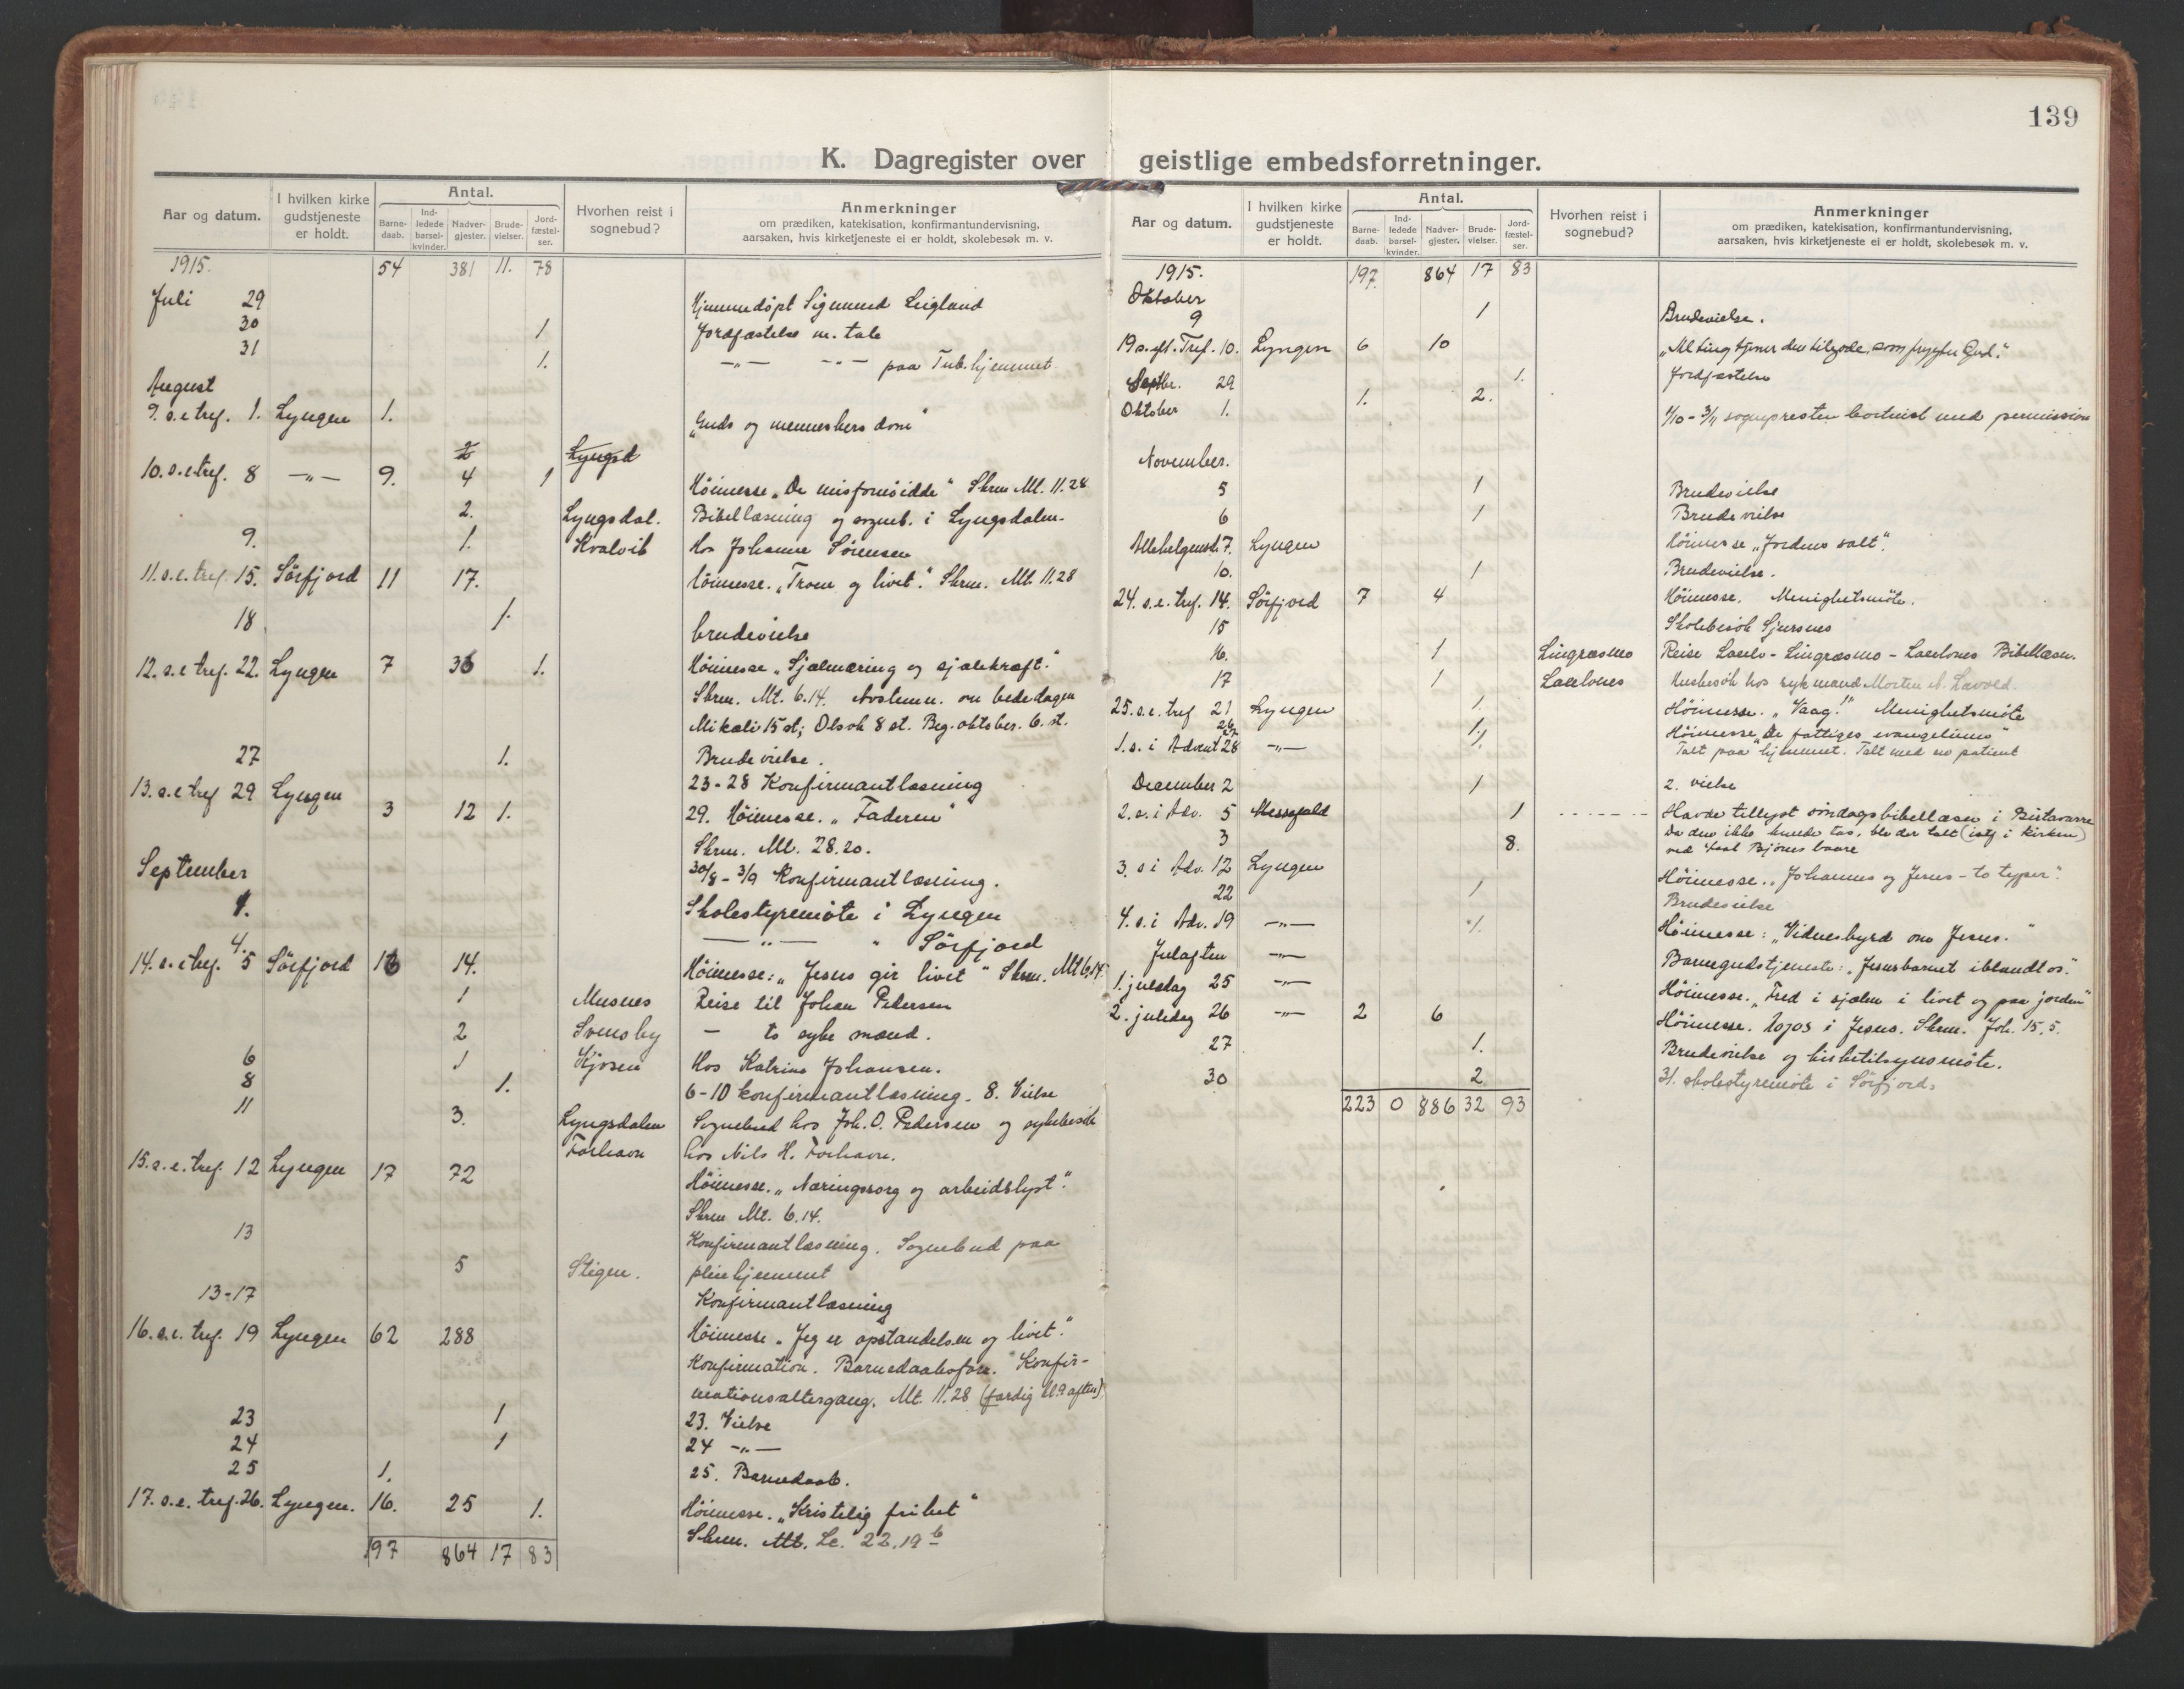 139
K. Dagregister over geistlige embedsforretninger.
Aar og datum. I hvilken kirke gudstjeneste er holdt. Antal. Barne-daab. Ind-ledede barsel-kvinder. Nadver-gjester. Brude-vielser. Jord-fæstel-ser. Hvorhen reist i sognebud? Anmerkninger om prædiken, katekisation, konfirmantundervisning, aarsaken, hvis kirketjeneste ei er holdt, skolebesøk m. v.
1915. 54 381 11. 78
Juli 29 Hjemmedöpt Sigmund
30 1 Jordfæstelse m. tale
31 1. -"- -"- paa Tub.hjemmet
August
9. s.e. tref. 1. Lyngen 1. "Guds og menneskers dom"
2 Lyngsd
10. s.e. tref. 8 -"- 9. 4 1 Höimesse "De misfornöidde" Skrm Mt. 11.28
2. Lyngsdal. Bibellæsning og sogneb. i Lyngsdalen.
9. 1. Kvalvik Hos Johanne Sörensen
11. s.e. tref. 15. Sörfjord 11 17. Höimesse. "Troen og livet." Skrm. Mt. 11.28
18 1. brudevielse
12. s.e. tref. 22. Lyngen 7 36 1. Höimesse "Sjælenæring og sjælekraft."
Skrm. Mt. 6.14. Avstemn. om bededagen
Mikali 15 st; Olsok 8 st. Beg. oktober. 6. st.
27 1. Brudevielse.
23-28 Konfirmantlæsning
13. s.e. tref 29 Lyngen 3 12 1. 29. Höimesse. "Faderen"
Skrm. Mt. 28.20.
September 30/8 - 3/9 Konfirmantlæsning.
1. Skolestyremöte i Lyngen
4. -"- " Sörfjord
14. s.e. tref. 5 Sörfjord 16 14. Höimesse: "Jesus gir livet" Skrm. Mt 6,14.
1 Musnes Reise til Johan Pedersen
2 Svensby - to syke mænd.
6 1 Kjosen Hos Katrine Johansen.
8 1. 6-10 konfirmantlæsning. 8. Vielse
11 3. Lyngsdalen Sognebud hos Joh. O. Pedersen og sykebesök
Forhavn hos Nils H. Forhavn.
15. s.e. tref. 12 Lyngen 17 72 Höimesse. "Næringssorg og arbeidslyst".
Skrm Mt. 6.14.
13 Konfirmantlæsning. Sognebud paa
5 Stigen. pleiehjemmet
13-17 Konfirmantlæsning
16. s.e. tref. 19 Lyngen 62 288 Höimesse "Jeg er opstandelsen og livet."
Konfirmation. Barnedaabsforr. Konfir-
mationsaltergang. Mt. 11.28 (færdig kl. 9 aften)
23 1 23. Vielse
24 1 24 -"-
25 1. 25. Barnedaab.
17. s.e. tref. 26. Lyngen. 16. 25 1. Höimesse. "Kristelig frihet"
Skrm. Mt. Lc. 22.19 b
197 864 17 83
Aar og datum. I hvilken kirke gudstjeneste er holdt. Antal. Barne-daab. Ind-ledede barsel-kvinder. Nadver-gjester. Brude-vielser. Jord-fæstel-ser. Hvorhen reist i sognebud? Anmerkninger om prædiken, katekisation, konfirmantundervisning, aarsaken, hvis kirketjeneste ei er holdt, skolebesøk m. v.
1915. 197. 864 17 83
Oktober
9 1 Brudevielse.
19 s. eft. Tref. 10. Lyngen 6 10 "Alting tjener dem tilgode, som frygter Gud."
Septbr. 29 1. Jordfæstelse
Oktober 1. 1. 2. 1/10 - 3/11 sognepresten bortreist med permission
November.
5 1 Brudevielse
6 1 Brudevielse
Allehelgensd. 7. Lyngen Höimesse "Jordens salt".
10. 1 Brudevielse.
24. s.e. tref. 14. Sörfjord 7 4 Höimesse. Menighetsmöte.
15 Skolebesök Sjursnes
16. 1 Lingræsmo Reise - Lingræsmo - Bibellæsn.
17 1 Husbesök hos sykmand Morten
25. s.e. tref 21 Lyngen 1. Höimesse. "Vaag!" Menighetsmöte
26 1.
1. s. i Advent 28 -"- 1. Höimesse "De fattiges evangelium"
Talt paa hjemmet. Talt med en patient
December 2 1 2. vielse
2. s. i Adv. 5 Messefald 1 Havde tillyst söndagsbibellæsn i Birtavarre
3 8. Da den ikke kunde tas, ble der talt (istf. i kirken)
ved baare
3. s i Adv. 12 Lyngen Höimesse. "Johannes og Jesus - to typer".
22 1 Brudevielse
4. s. i Adv. 19 -"- 1. Höimesse: "Vidnesbyrd om Jesus."
Julaften -"- Barnegudstjeneste: "Jesusbarnet iblandt os."
1. juledag 25 -"- Höimesse. "Fred i sjælen i livet og paa jorden"
2. juledag 26 -"- 2 6 Höimesse. Logos i Jesus. Skrm. Joh. 15,5.
27 1. Brudevielse og kirketilsynsmöte.
30 2 31. skolestyremöte i Sörfjord.
223 0 886 32 93